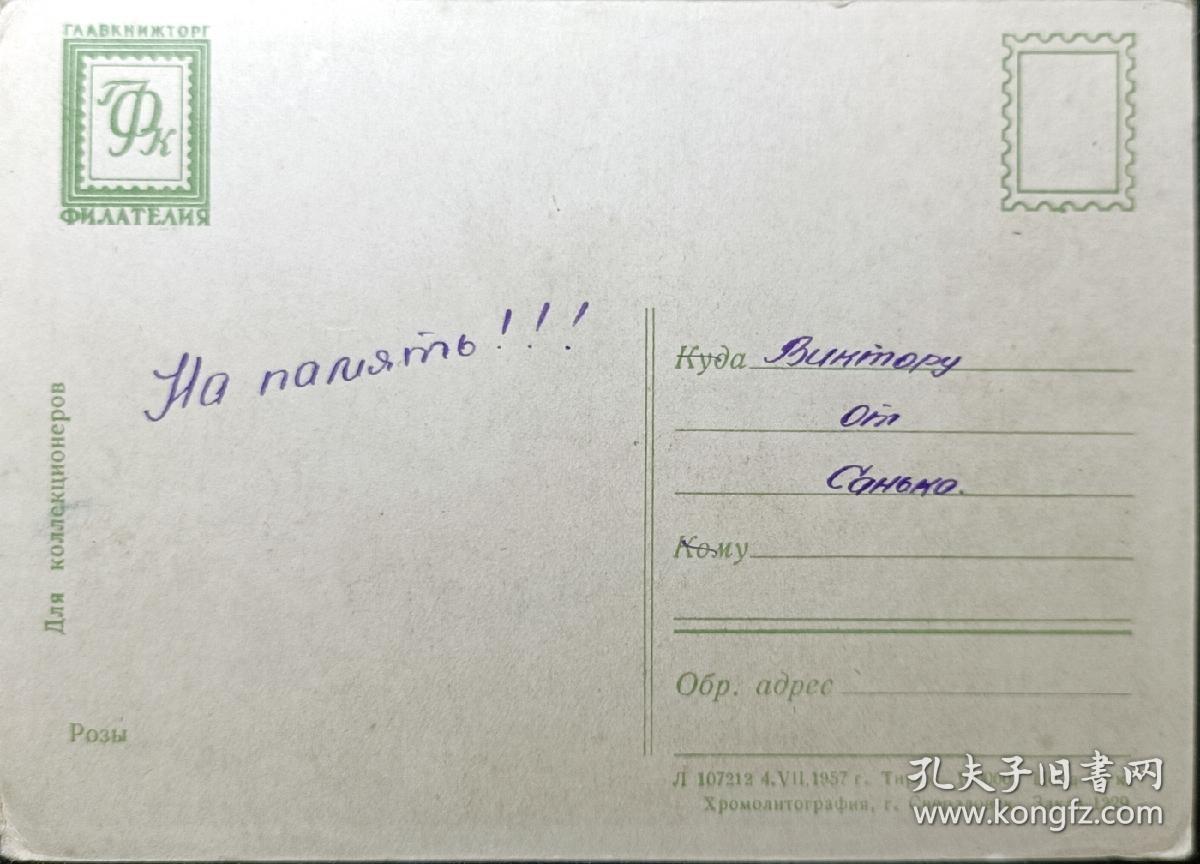 ГЛАВКНИЖТОРГ
ГФК
ФИЛАТЕЛИЯ
На память!!!
Для коллекционеров
Розы
Куда Виктору
от
Санько.
Кому
Обр. адрес
Л 107212 4.VII.1957 г.
Хромолитография, г.
孔夫子旧书网
www.kongfz.com